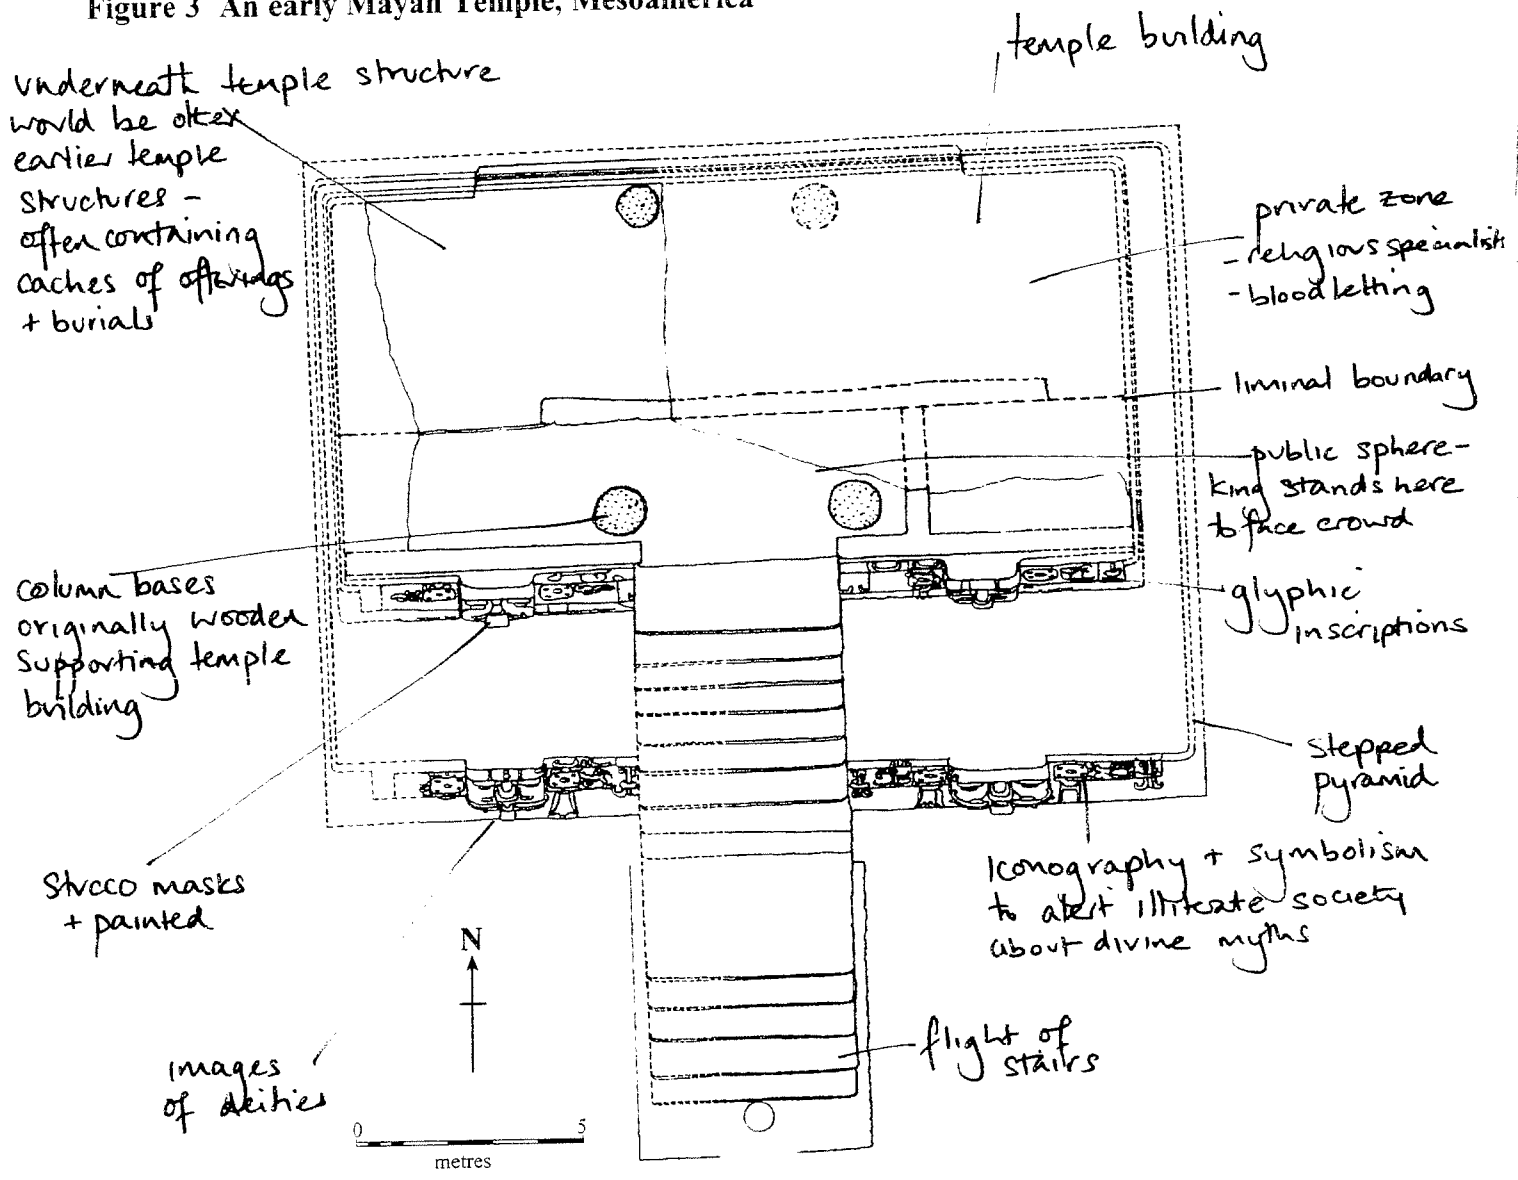 Figure 3 An early Mayan Temple, Mesoamerica
temple building
underneath temple structure
would be other
earlier temple
structures -
often containing
caches of offerings
+ burials
private zone
- religious specialists
- bloodletting
liminal boundary
public sphere -
king stands here
to face crowd
column bases
originally wooden
supporting temple
building
glyphic
inscriptions
stepped
pyramid
Stucco masks
+ painted
Iconography + symbolism
to alert illiterate society
about divine myths
N
images
of deities
flight of
stairs
0 5
metres